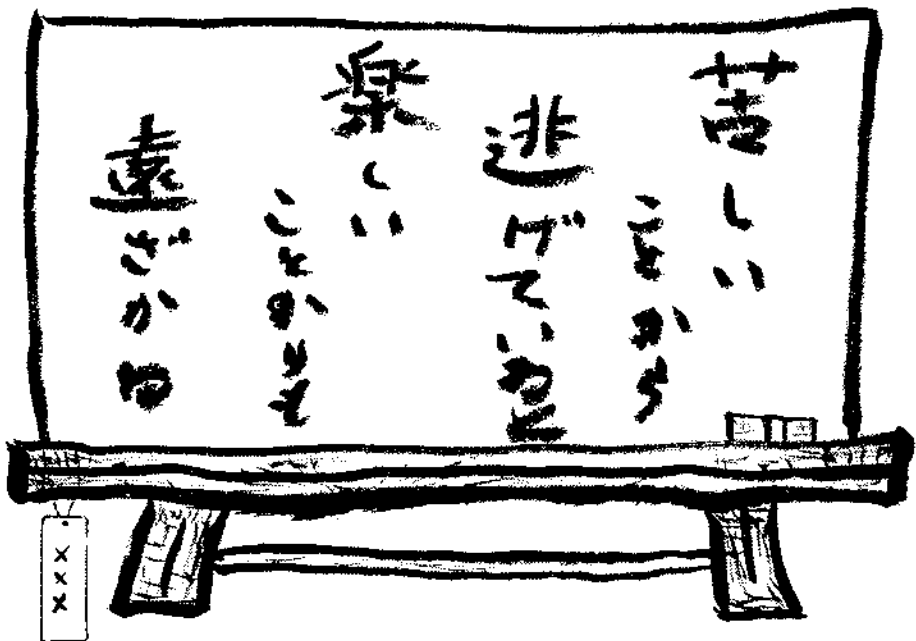 苦しい
ことから
逃げていると
楽しい
ことからも
遠ざかる
×××